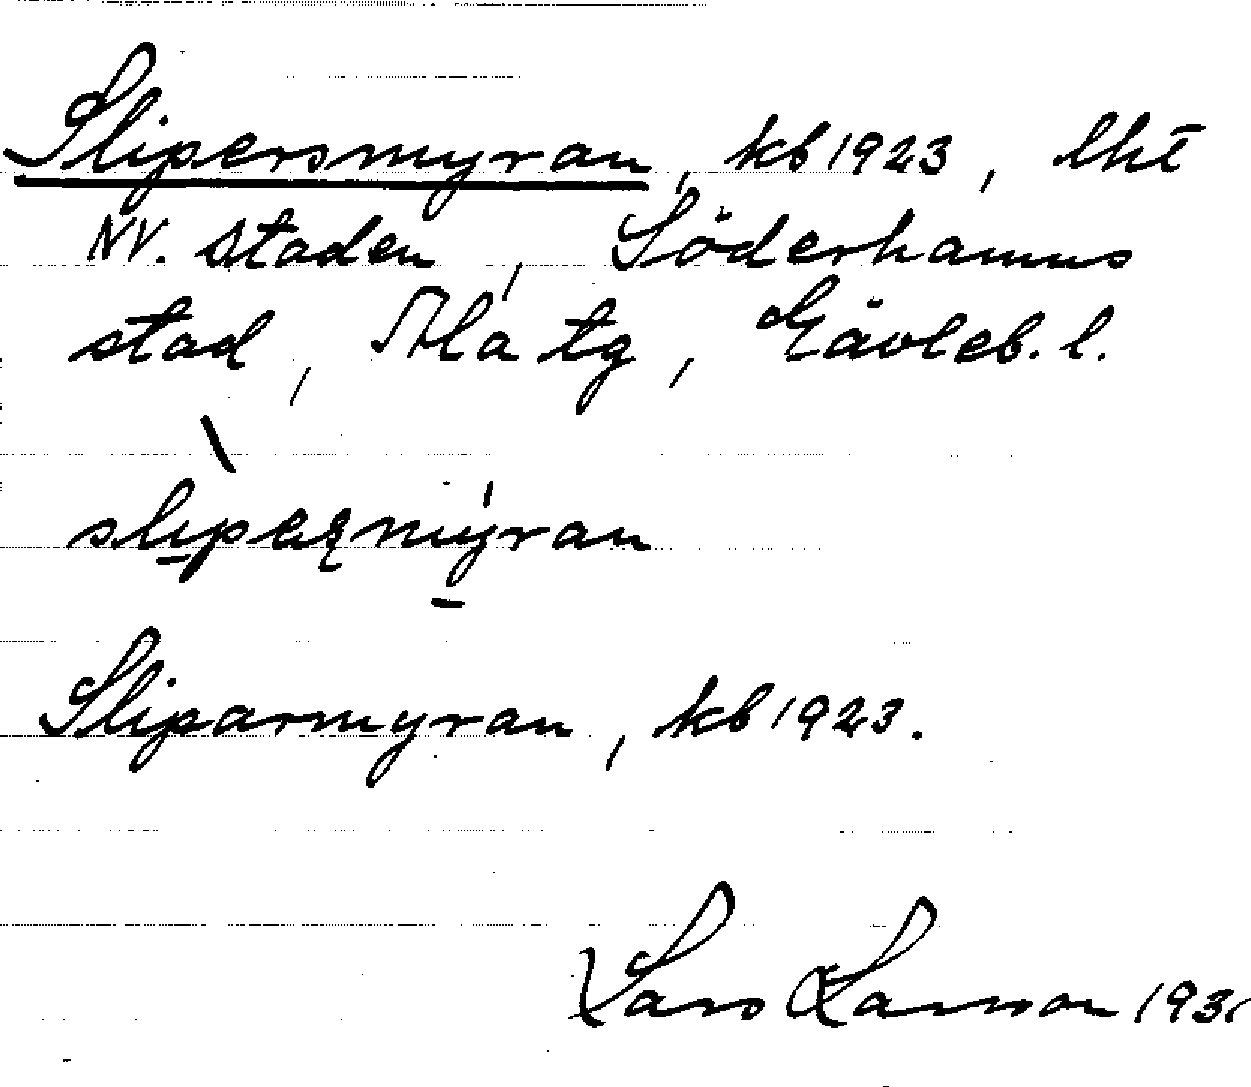 Slipersmyran, kb 1923, lht
NV. staden, Söderhamns
stad, Ala tg, Gävleb. l.
slipeʀmyran
Sliparmyran, kb 1923.
Lars Larsson 193